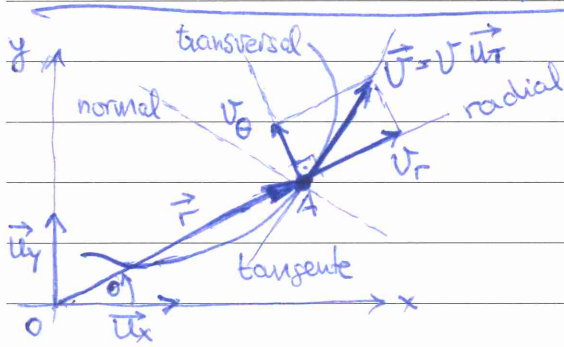 y
transversal
v⃗ = v u⃗_T
normal
v_θ
radial
v_r
r⃗
A
u⃗_y
tangente
θ
O
u⃗_x
x